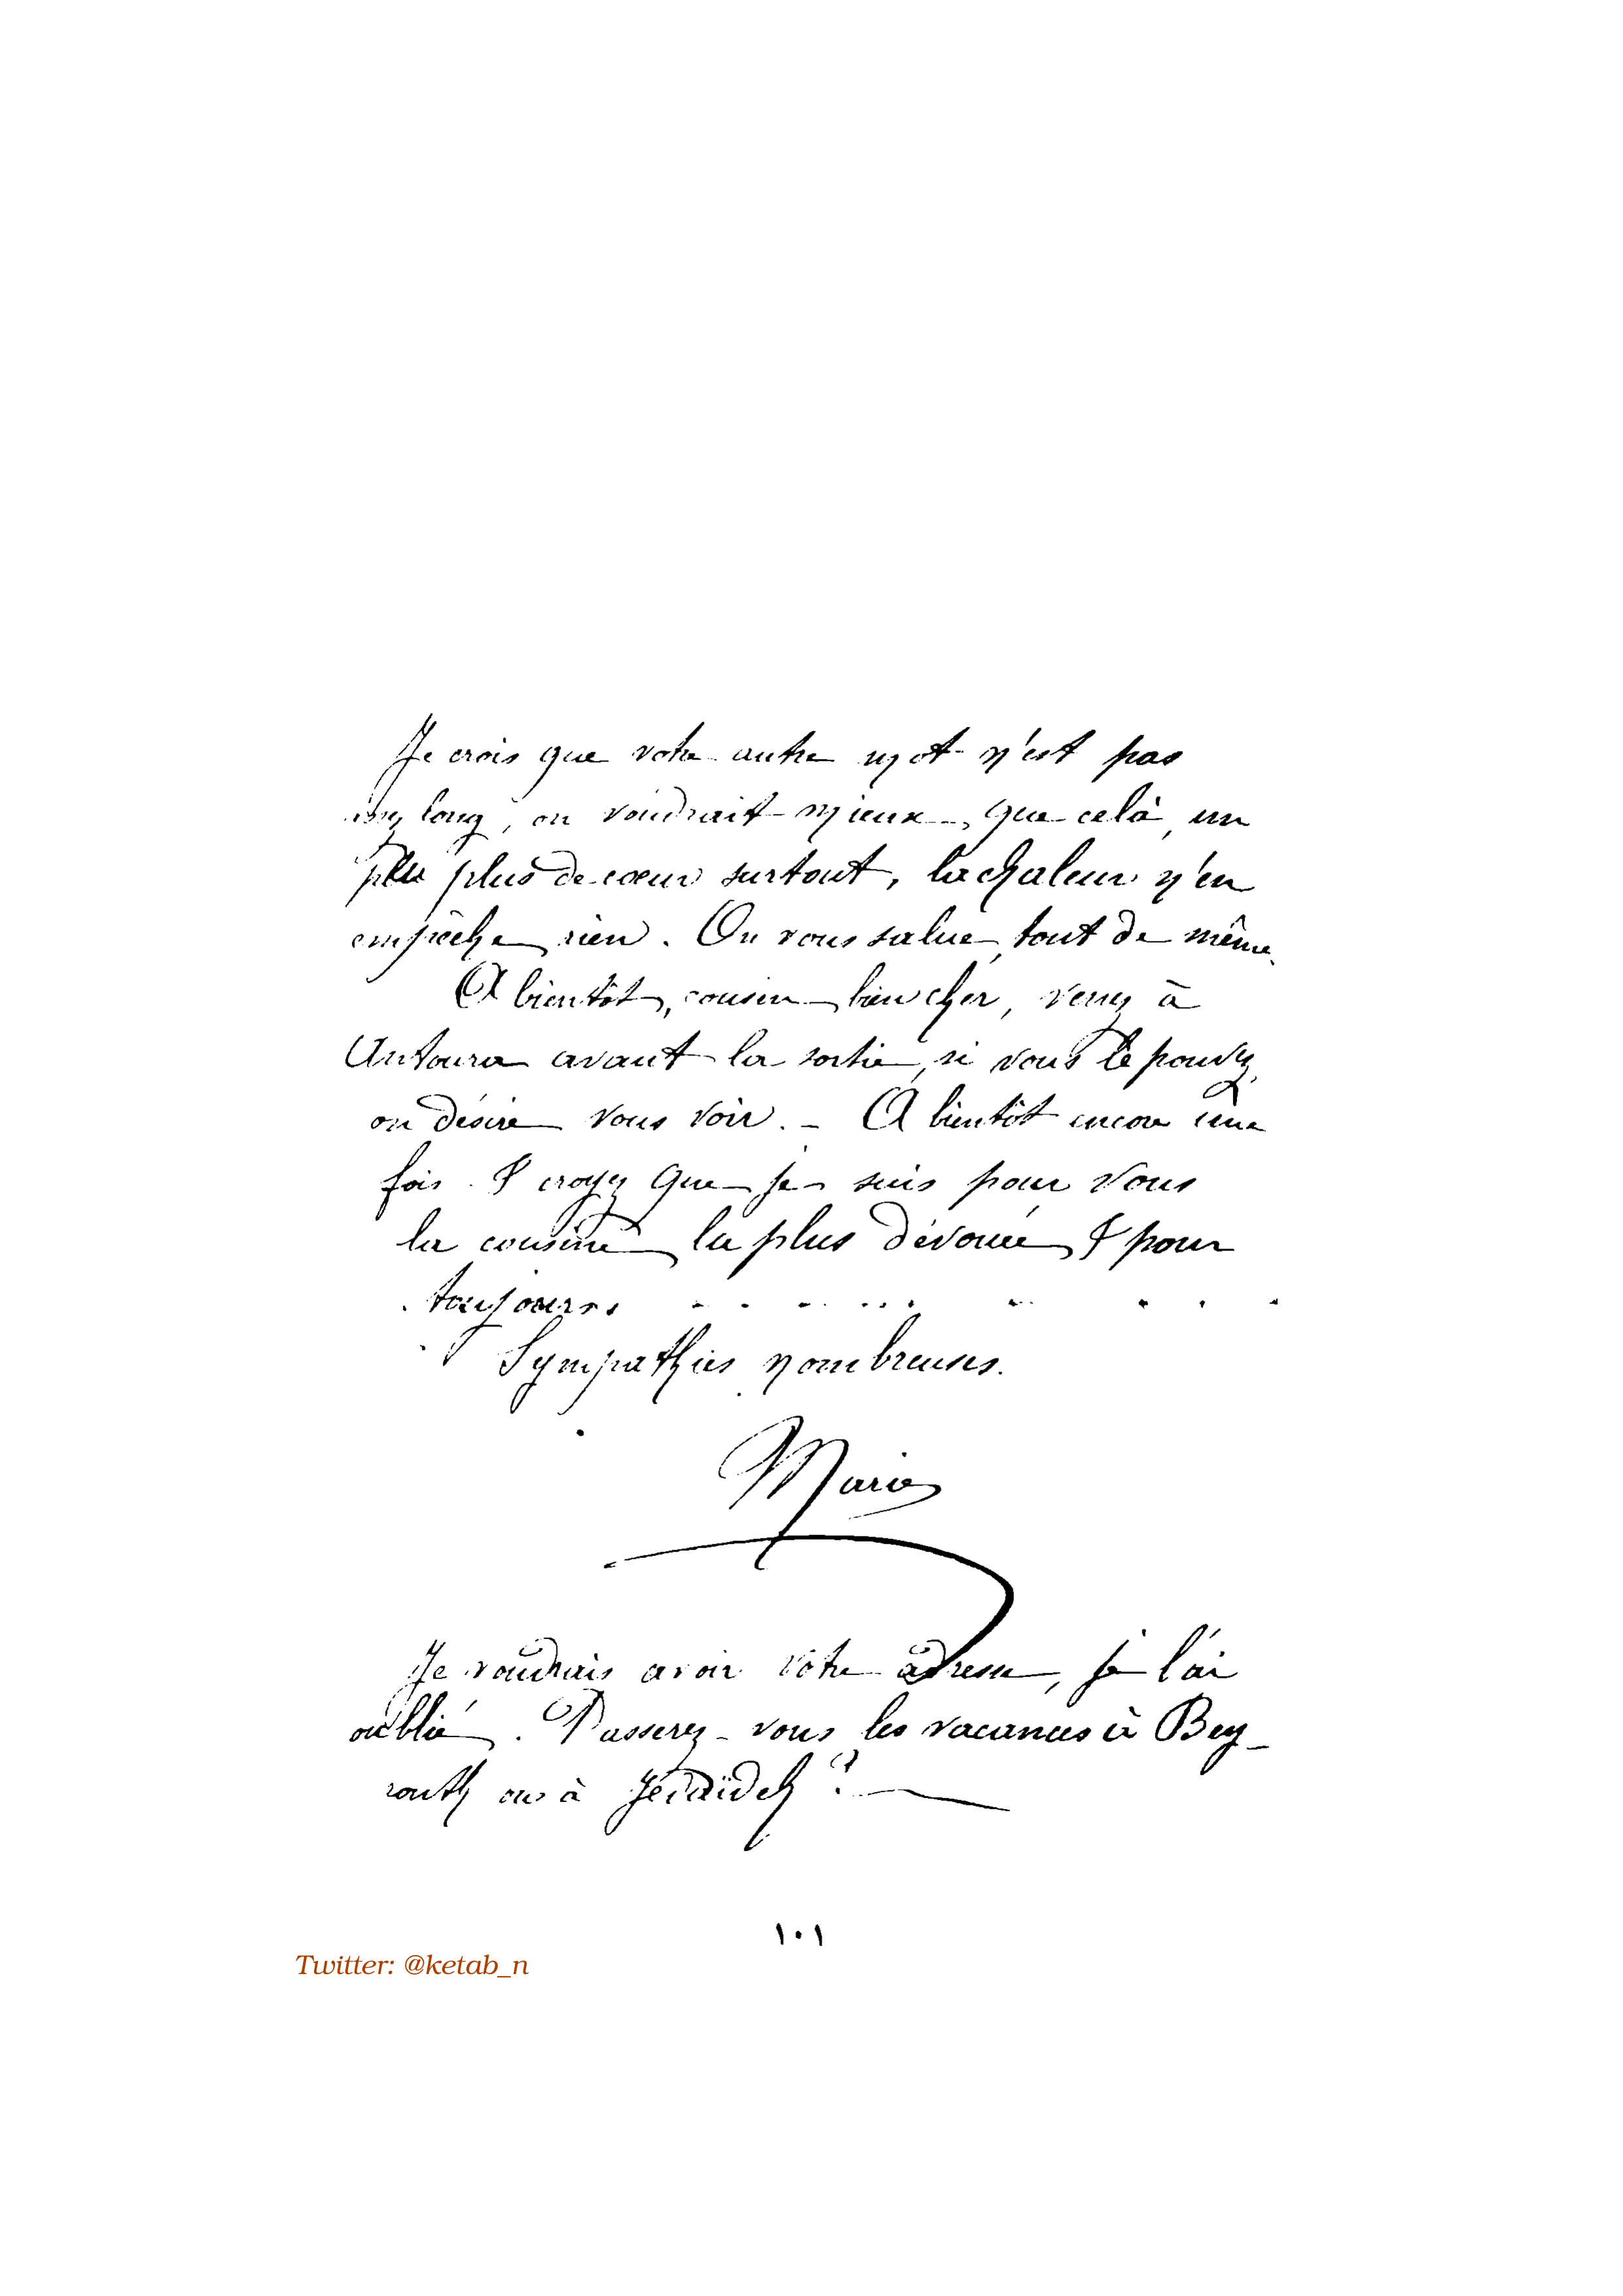 Je crois que votre autre mot n'est pas
long, on voudrait mieux que celà, un
peu plus de cœur surtout, la chaleur n'en
empêche rien. On vous salue, tout de même.
A bientôt, cousin bien cher, venez à
Antoura avant la sortie, si vous le pouvez,
on désire vous voir. - A bientôt encore une
fois. & croyez que je suis pour vous
la cousine la plus dévouée & pour
toujours. . . . . . . . . . .
Sympathies nombreuses.
Marie
Je voudrais avoir votre adresse, je l'ai
oublié. Passerez-vous les vacances à Bey-
routh ou à Jédaïdeh?
١٠١
Twitter: @ketab_n